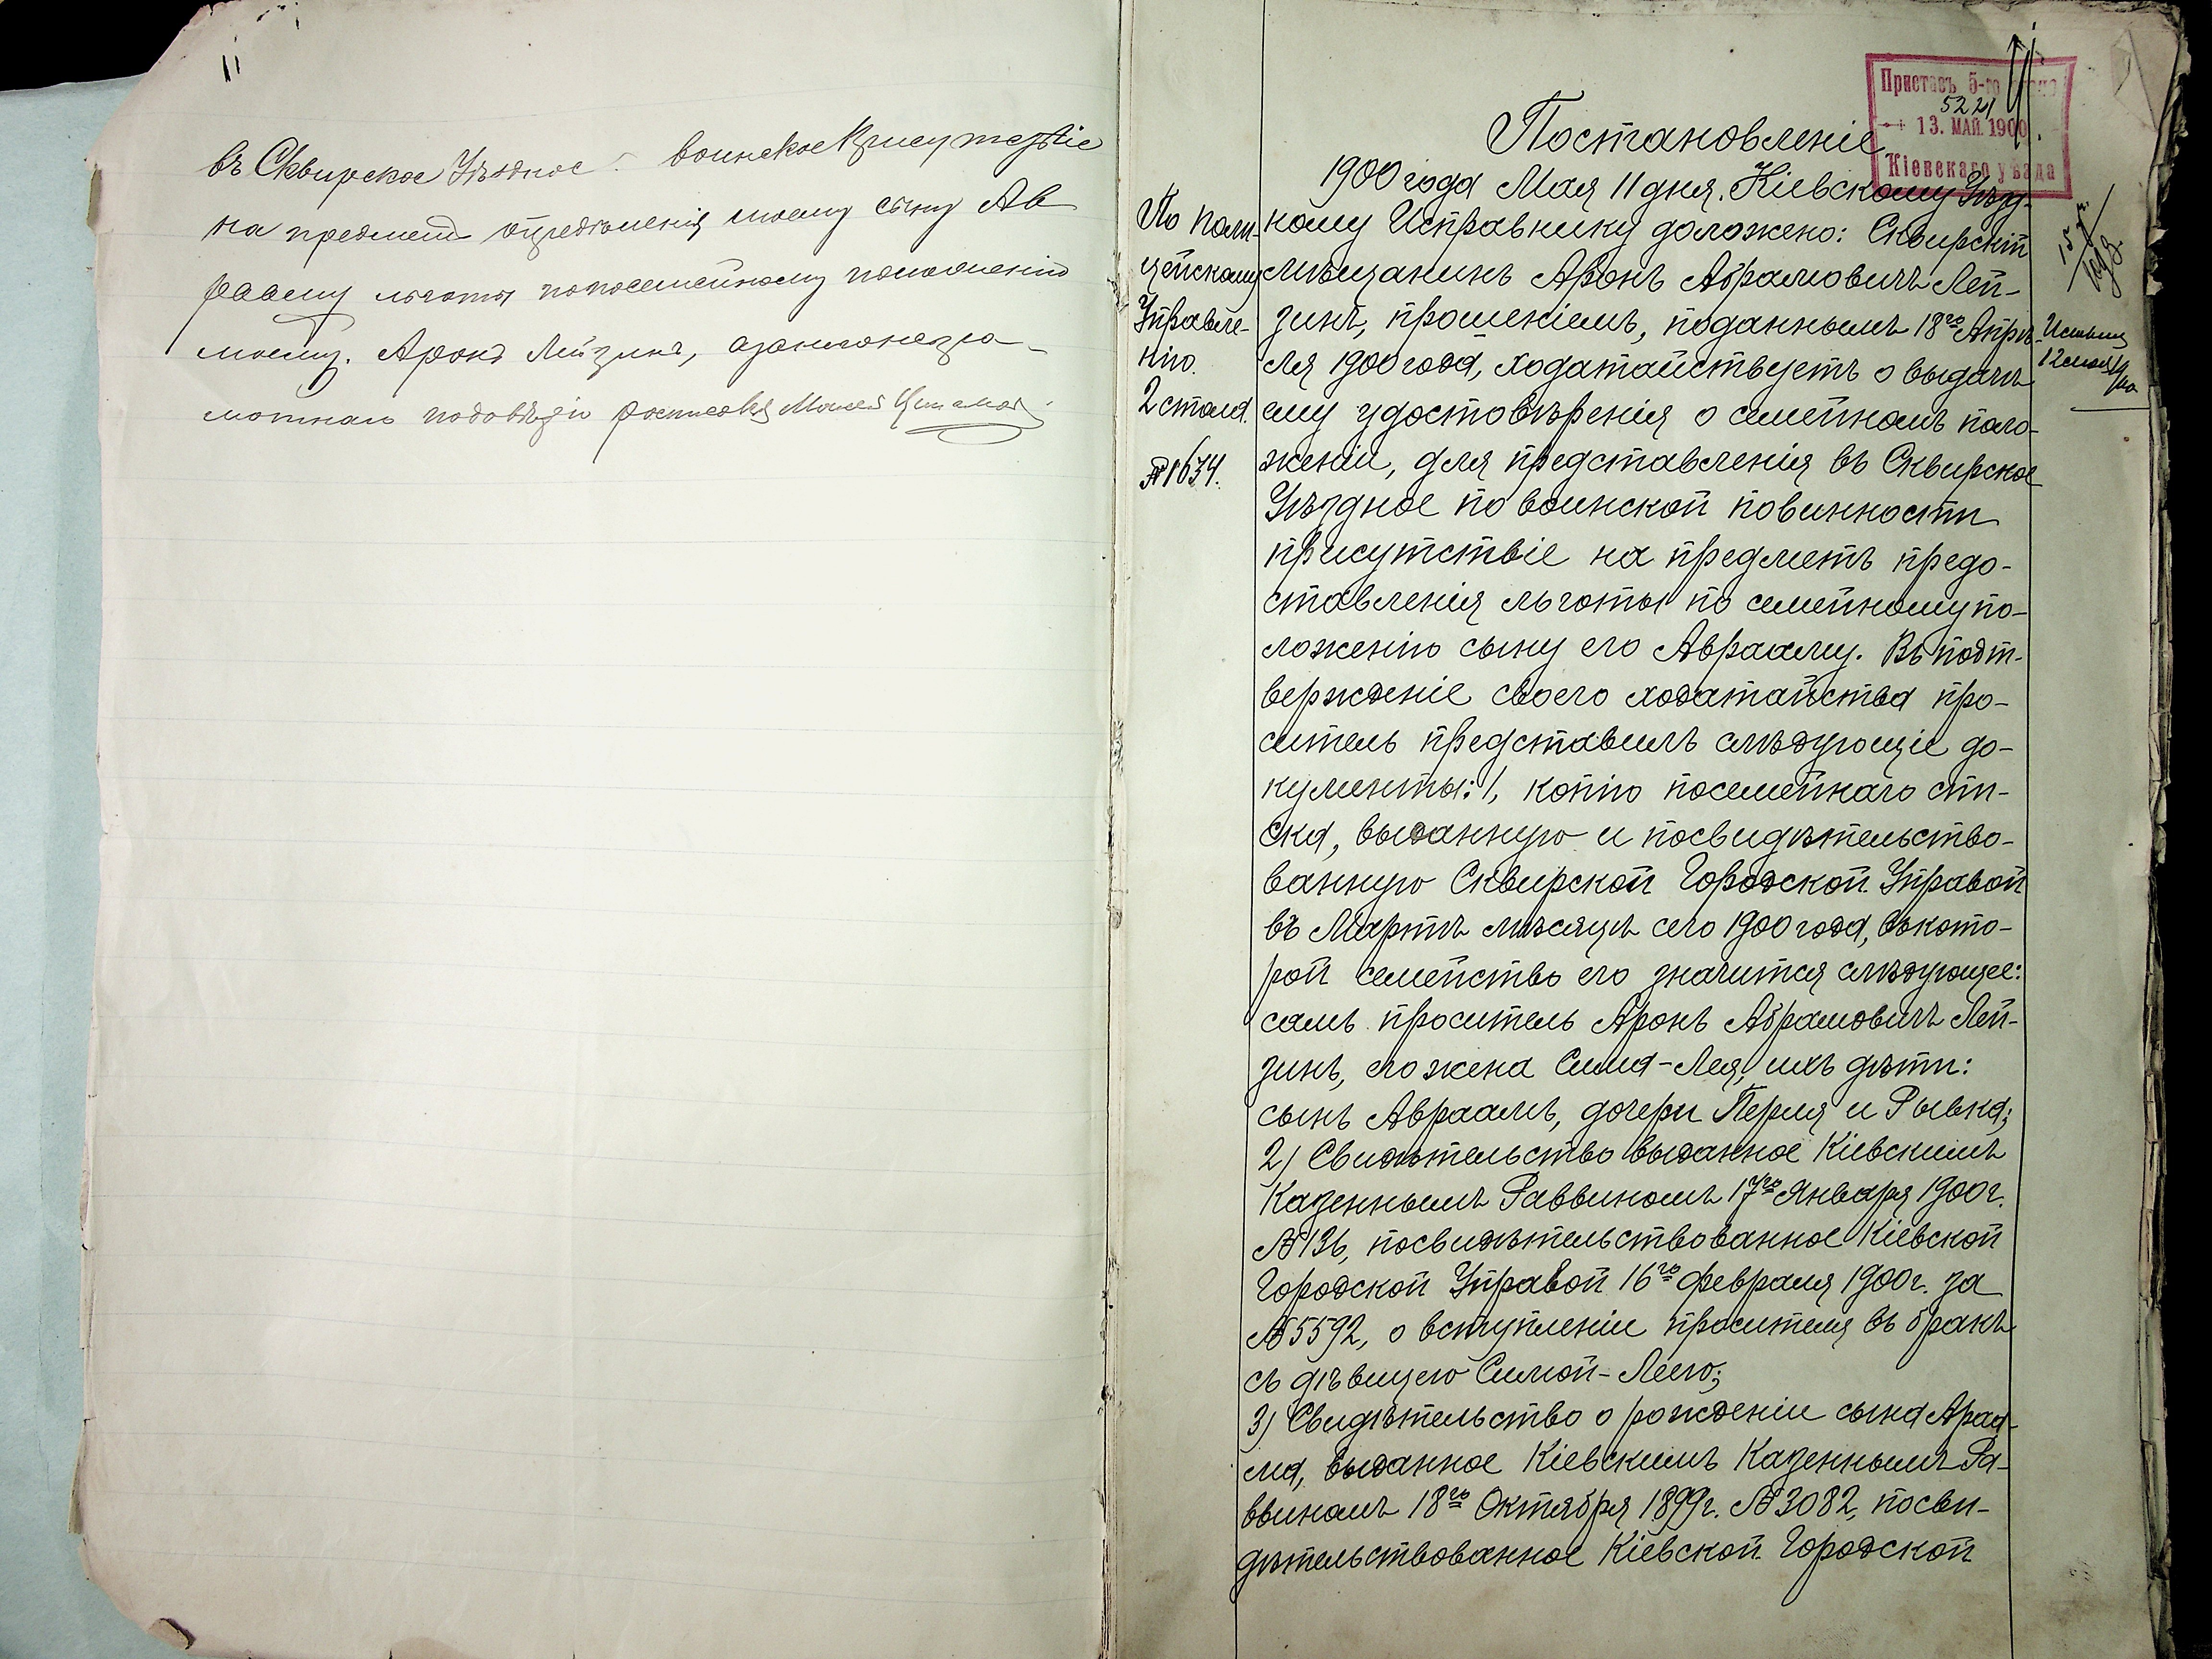 въ Сквирское Уѣздное воинское Присутствіе
на предметъ опредѣленія моему сыну Ав
рааму льготы по посемейному положенію
моему. Аронъ Лейзинъ, а за него негра-
мотнаго по довѣрію росписовся Моисей
Приставъ 5-го стана
5221
13. МАЙ. 1900
Кіевскаго уѣзда
Постановленіе
1900 года Мая 11 дня. Кіевскому Уѣзд-
ному Исправнику доложено: Сквирскій
мѣщанинъ Аронъ Абрамовичъ Лей-
зинъ, прошеніемъ, поданнымъ 18го Апрѣ-
ля 1900 года, ходатайствуетъ о выдачѣ
ему удостовѣренія о семейномъ поло-
женіи, для представленія въ Сквирское
Уѣздное по воинской повинности
присутствіе на предметъ предо-
ставленія льготы по семейному по-
ложенію сыну его Аврааму. Въ подт-
вержденіе своего ходатайства про-
ситель представилъ слѣдующіе до-
кументы: 1, копію посемейнаго спи-
ска, выданную и посвидѣтельство-
ванную Сквирской Городской Управой
въ Мартѣ мѣсяцѣ сего 1900 года, въ кото-
рой семейство его значится слѣдующее:
самъ проситель Аронъ Абрамовичъ Лей-
зинъ, его жена Сима-Лея, ихъ дѣти:
сынъ Авраамъ, дочери Перля и Рывка;
2) Свидѣтельство выданное Кіевскимъ
Казеннымъ Раввиномъ 17го Января 1900 г.
№ 136, посвидѣтельствованное Кіевской
Городской Управой 16го февраля 1900 г. за
№ 5592, о вступленіи просителя въ бракъ
съ дѣвицею Симой-Леею;
3) Свидѣтельство о рожденіи сына Араа-
ма, выданное Кіевскимъ Казеннымъ Ра-
ввиномъ 18го Октября 1899 г. № 3082, посви-
дѣтельствованное Кіевской Городской
По поли-
цейскому
Управле-
нію.
2 стола.
№ 1634.